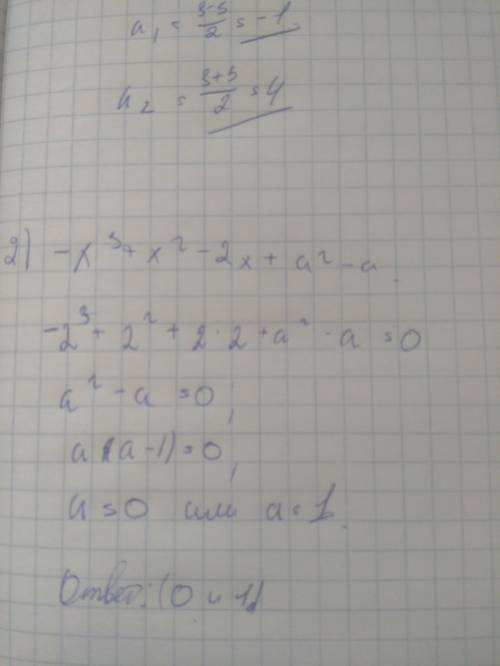 a₁ = (3-5)/2 = -1
a₂ = (3+5)/2 = 4
2) -x³ + x² - 2x + a² - a.
-2³ + 2² + 2·2 + a² - a = 0
a² - a = 0;
a (a - 1) = 0;
a = 0 или a = 1.
Ответ: (0 и 1)